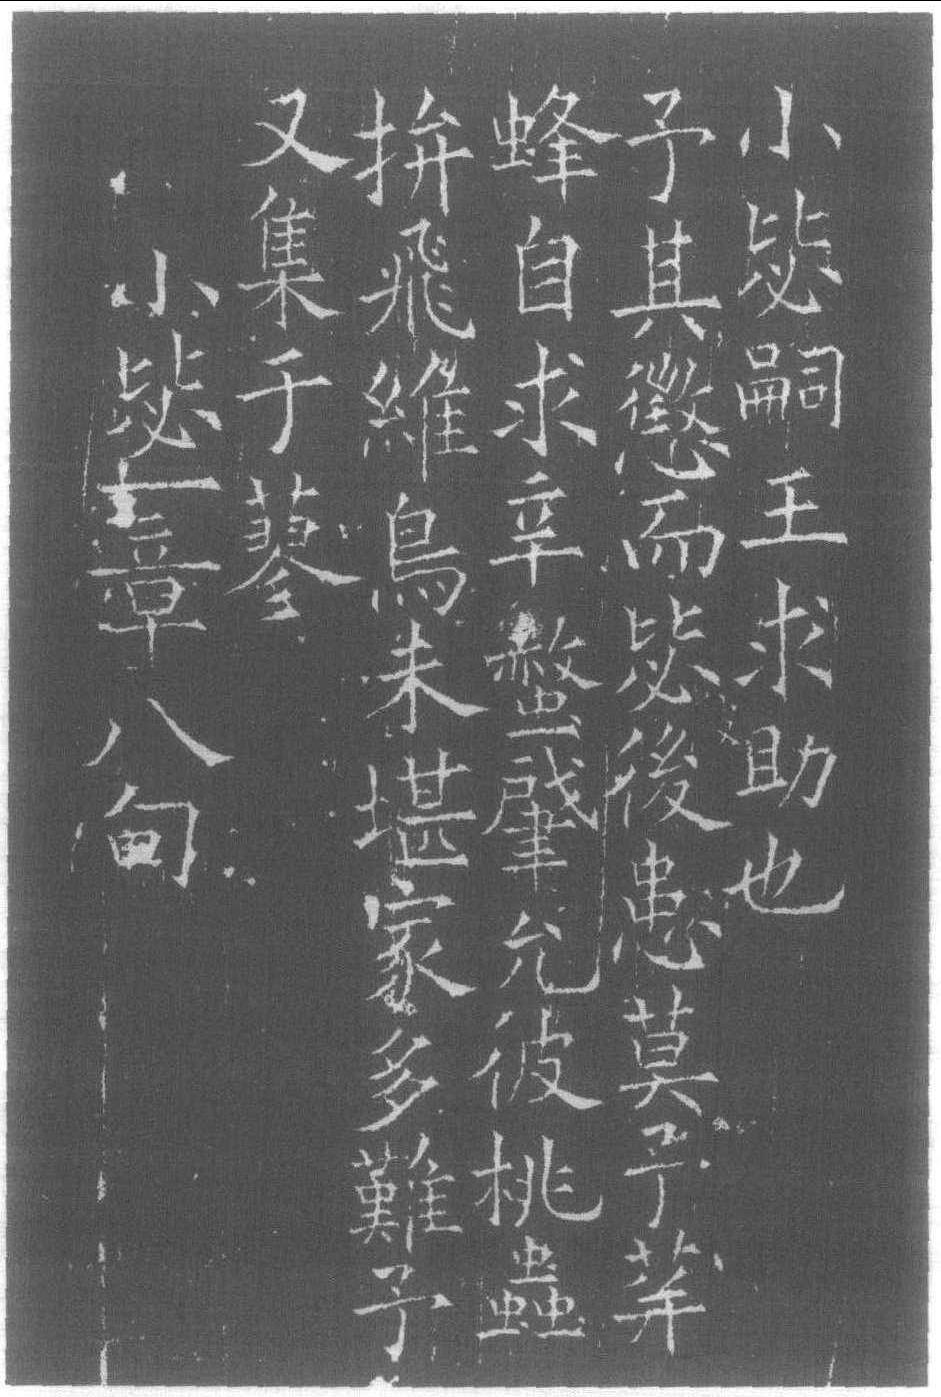 小毖嗣王求助也
予其懲而毖後患莫予荓
蜂自求辛螫肇允彼桃蟲
拚飛維鳥未堪家多難予
又集于蓼
小毖一章八句